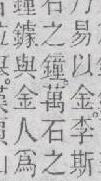 乃易以金。李斯
石之鐘。萬石之
鐘鐻與金人爲